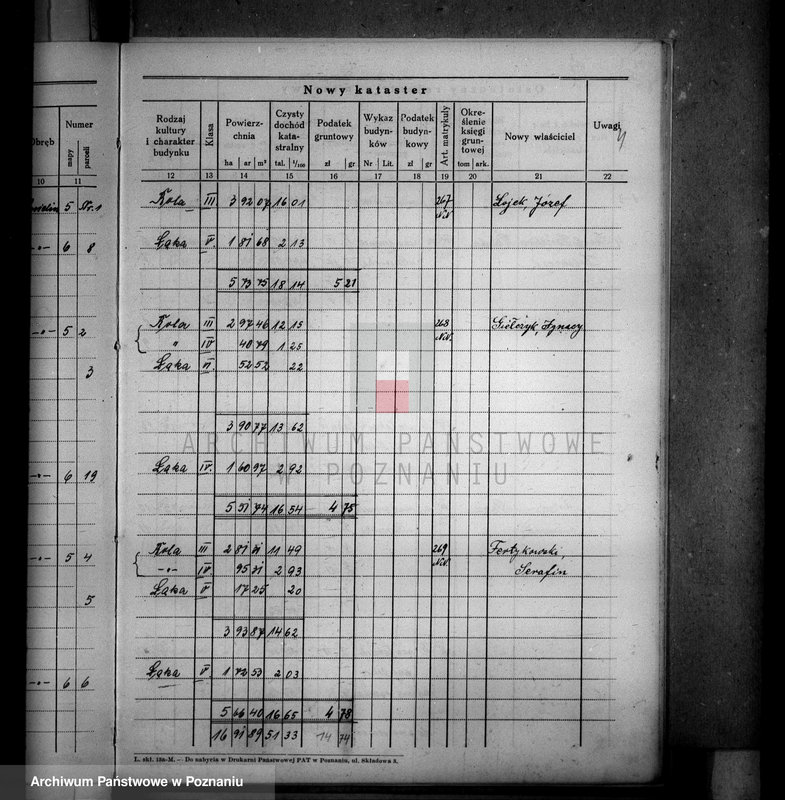 Nowy kataster
Obręb
Numer
mapy
parceli
Rodzaj kultury i charakter budynku
Klasa
Powierzchnia
ha ar m²
Czysty dochód katastralny
tal. 1/100
Podatek gruntowy
zł gr
Wykaz budynków
Nr Lit.
Podatek budynkowy
zł gr
Art. matrykuły
Określenie księgi gruntowej
tom ark.
Nowy właściciel
Uwagi
10 11 12 13 14 15 16 17 18 19 20 21 22
5 Nr. 1 Rola III 3 92 07 16 01 267 Łojek, Józef
-"- 6 8 Łąka V. 1 81 68 2 13
5 73 75 18 14 5 21
-"- 5 2 Rola III 2 97 46 12 15 268 Giełczyk, Ignacy
" IV 40 79 1 25
3 Łąka VI. 52 52 22
3 90 77 13 62
-"- 6 19 Łąka IV. 1 60 97 2 92
5 51 74 16 54 4 75
-"- 5 4 Rola III 2 81 81 11 49 269 Fertykowski,
-"- IV 95 81 2 93 Serafin
5 Łąka V 17 25 20
3 93 87 14 62
-"- 6 6 Łąka V. 1 72 53 2 03
5 66 40 16 65 4 78
16 91 89 51 33 14 74
L. skł. 13a-M. — Do nabycia w Drukarni Państwowej PAT w Poznaniu, ul. Składowa 3.
ARCHIWUM PAŃSTWOWE
W POZNANIU
Archiwum Państwowe w Poznaniu